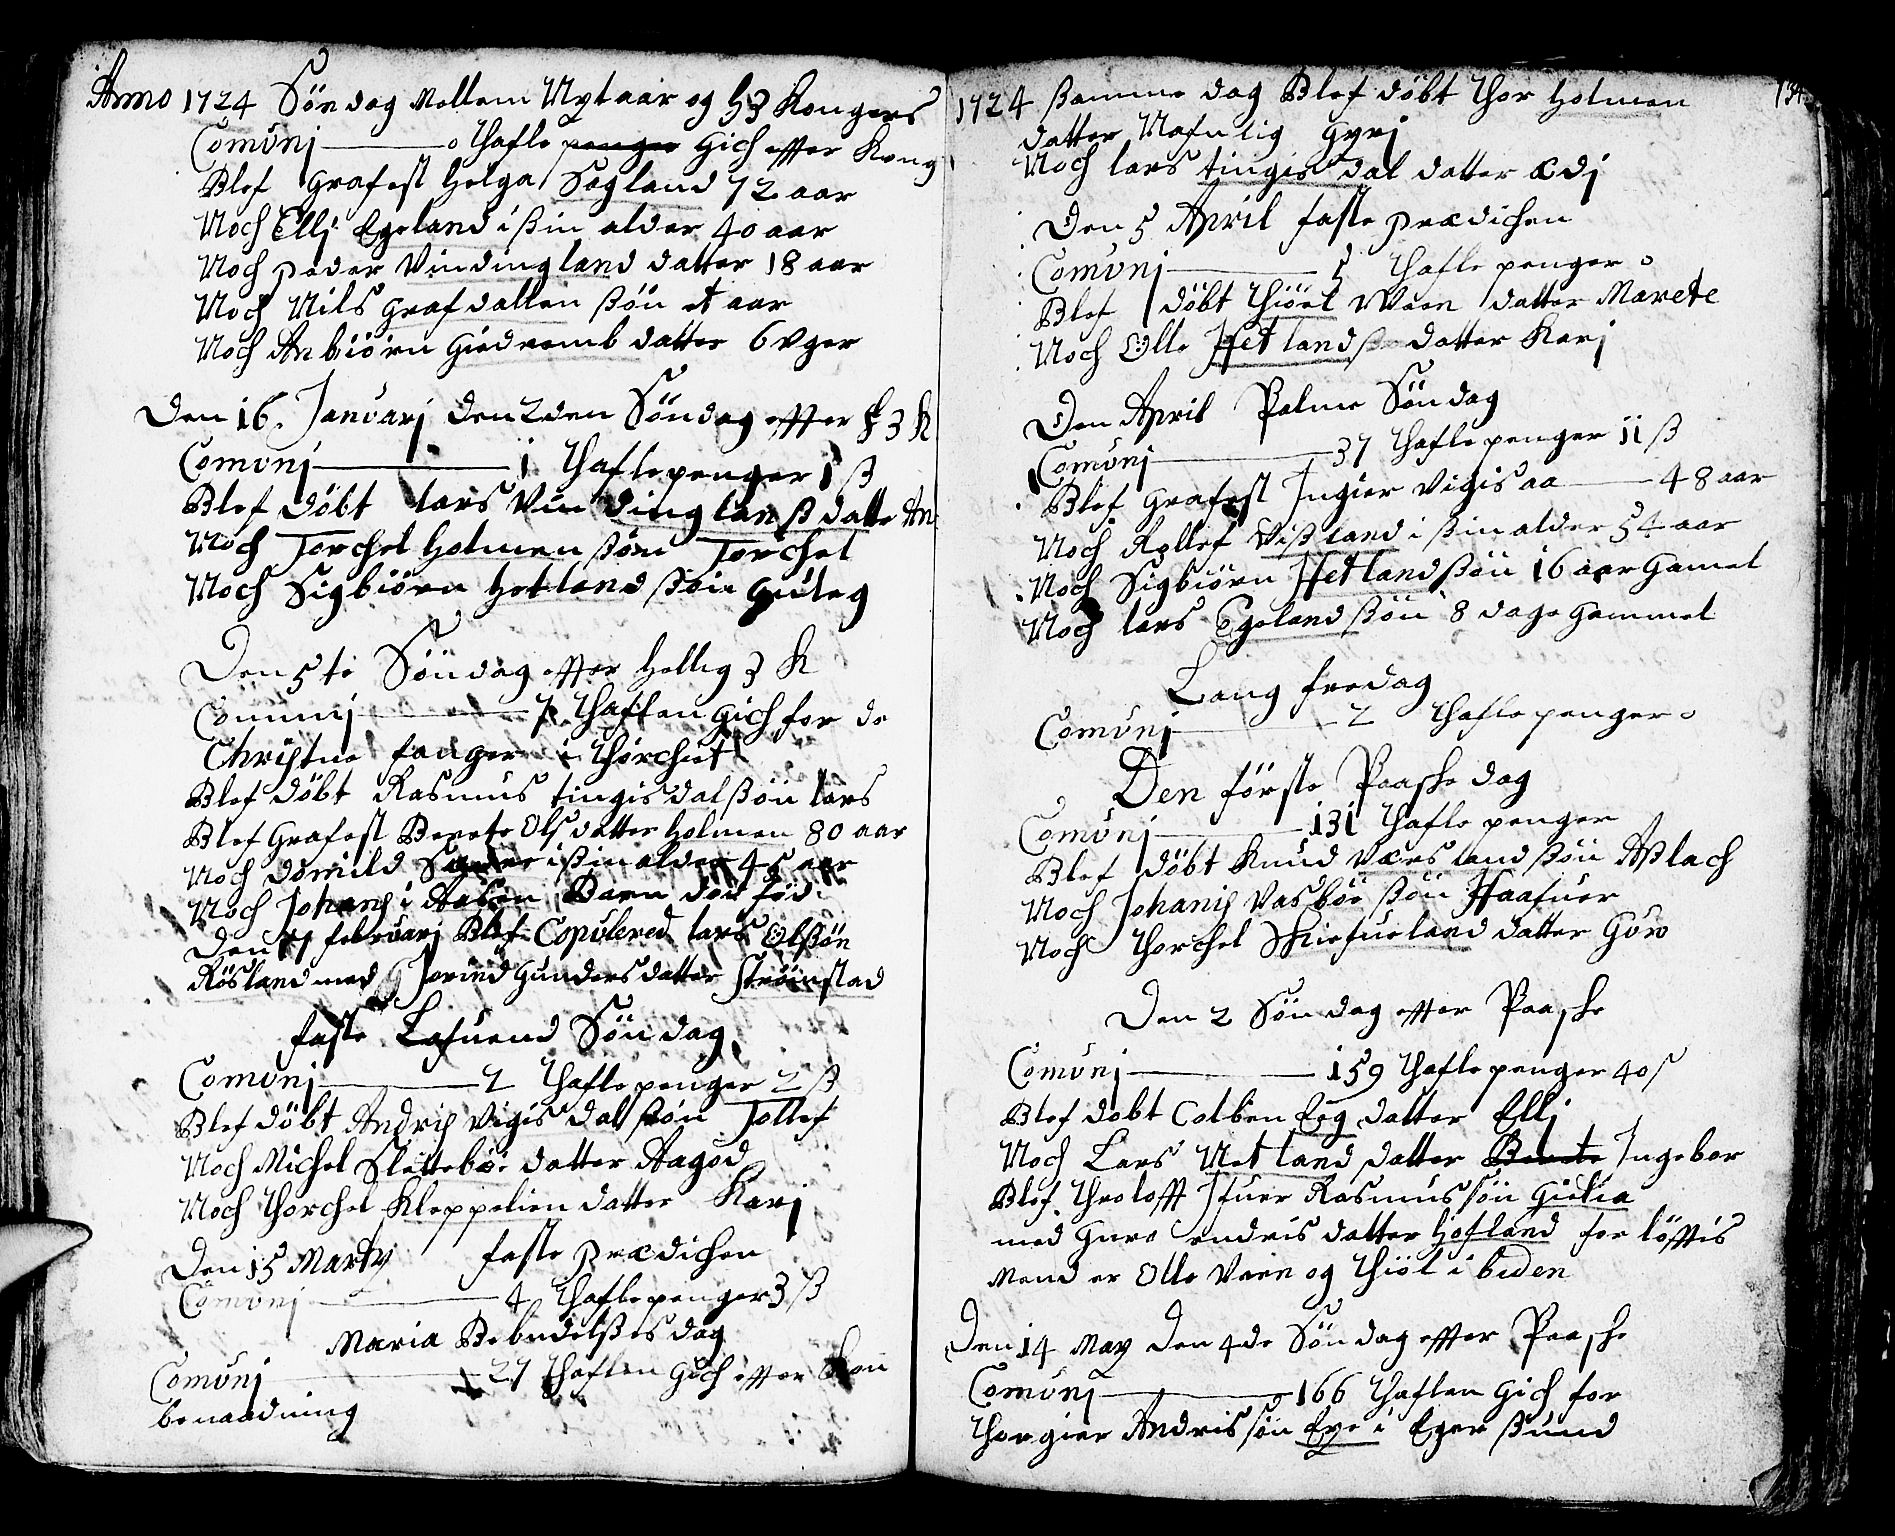 Anno 1724 Söndag Mellem Nytaar og H 3 Kongers
Comunj — 0 thafle penger Gich effter Kong
Blef Grafest Helga Sogland 72 aar
Noch Ellj Egeland i ßin alder 40 aar
Noch Peder Vindingland datter 18 aar
Noch Nils Grafdallen ßön et aar
Noch Anbiörn Giedremb datter 6 Vger
Den 16. Januarj den 2den Söndag effter H 3 K
Comunj — 1 thaflepenger 1 ß
Blef döbt lars Vindinglanß datte An
Noch Torchel Holmen ßön Torchel
Noch Sigbiörn Hetland ßön Gutleg
Den 5te Söndag effter Hellig 3 K
Comunj — 7 Thaflen gich for de
Christne fanger i thörchiet
Blef döbt Rasmus tingisdal ßön lars
Blef Grafest Berete Ols datter Holmen 80 aar
Noch Domild i ßin alder 45 aar
Noch Johanis i Aasen Barn död föd
Den februarj Blef Copulered lars Olßön
Rösland med Jorind Gunders datter Strömstad
faste Lafuend Söndag
Comunj — 7 thaflepenger 2 ß
Blef döbt Andris Vigisdal ßön Tollef
Noch Michel Sletteböe datter Aagod
Noch thorchel Kleppelien datter Karj
Den 15 Marty faste Prædichen
Comunj — 4 thaflepenger 3 ß
Maria Bebudelßes dag
Comunj — 27 thaflen gich effter Kon
benaadning
134
1724 ßamme dag Blef döbt thor Holmen
datter Nafnlig Gyrj
Noch lars tingisdal datter Ædj
Den 5 April faste Prædichen
Comunj — 5 thafle penger 0
Blef döbt thiöel Veen datter Marete
Noch Olle Hetland datter Karj
Den April Palme Söndag
Comunj — 37 thaflepenger 11 ß
Blef Grafest Ingier Vigisaa — 48 aar
Noch Rollef Vißland i ßin alder 54 aar
Noch Sigbiörn Hetland ßön 16 aar Gamel
Noch lars Egeland ßön 8 dage Gammel
Lang fredag
Comunj — 2 thaflepenger 0
Den förste Paaske dag
Comunj — 131 thafle penger
Blef döbt Knud Værsland ßön Aßlach
Noch Johanis Vasböe ßön Haafuer
Noch thorchel Skiefueland datter Guro
Den 2 Söndag effter Paaske
Comunj — 159 thaflepenger 40 ß
Blef döbt Colben Eeg datter Ellj
Noch Lars Netland datter Berete Ingebor
Blef throlofft Ifuer Rasmussön Gielia
med Guro Endris datter Hofland for löfftis
Mend er Olle Veen og thiöl i beden
Den 14 May den 4de Söndag effter Paaske
Comunj — 166 thaflen gich for
thorgier Andrissön Eye i Egersund